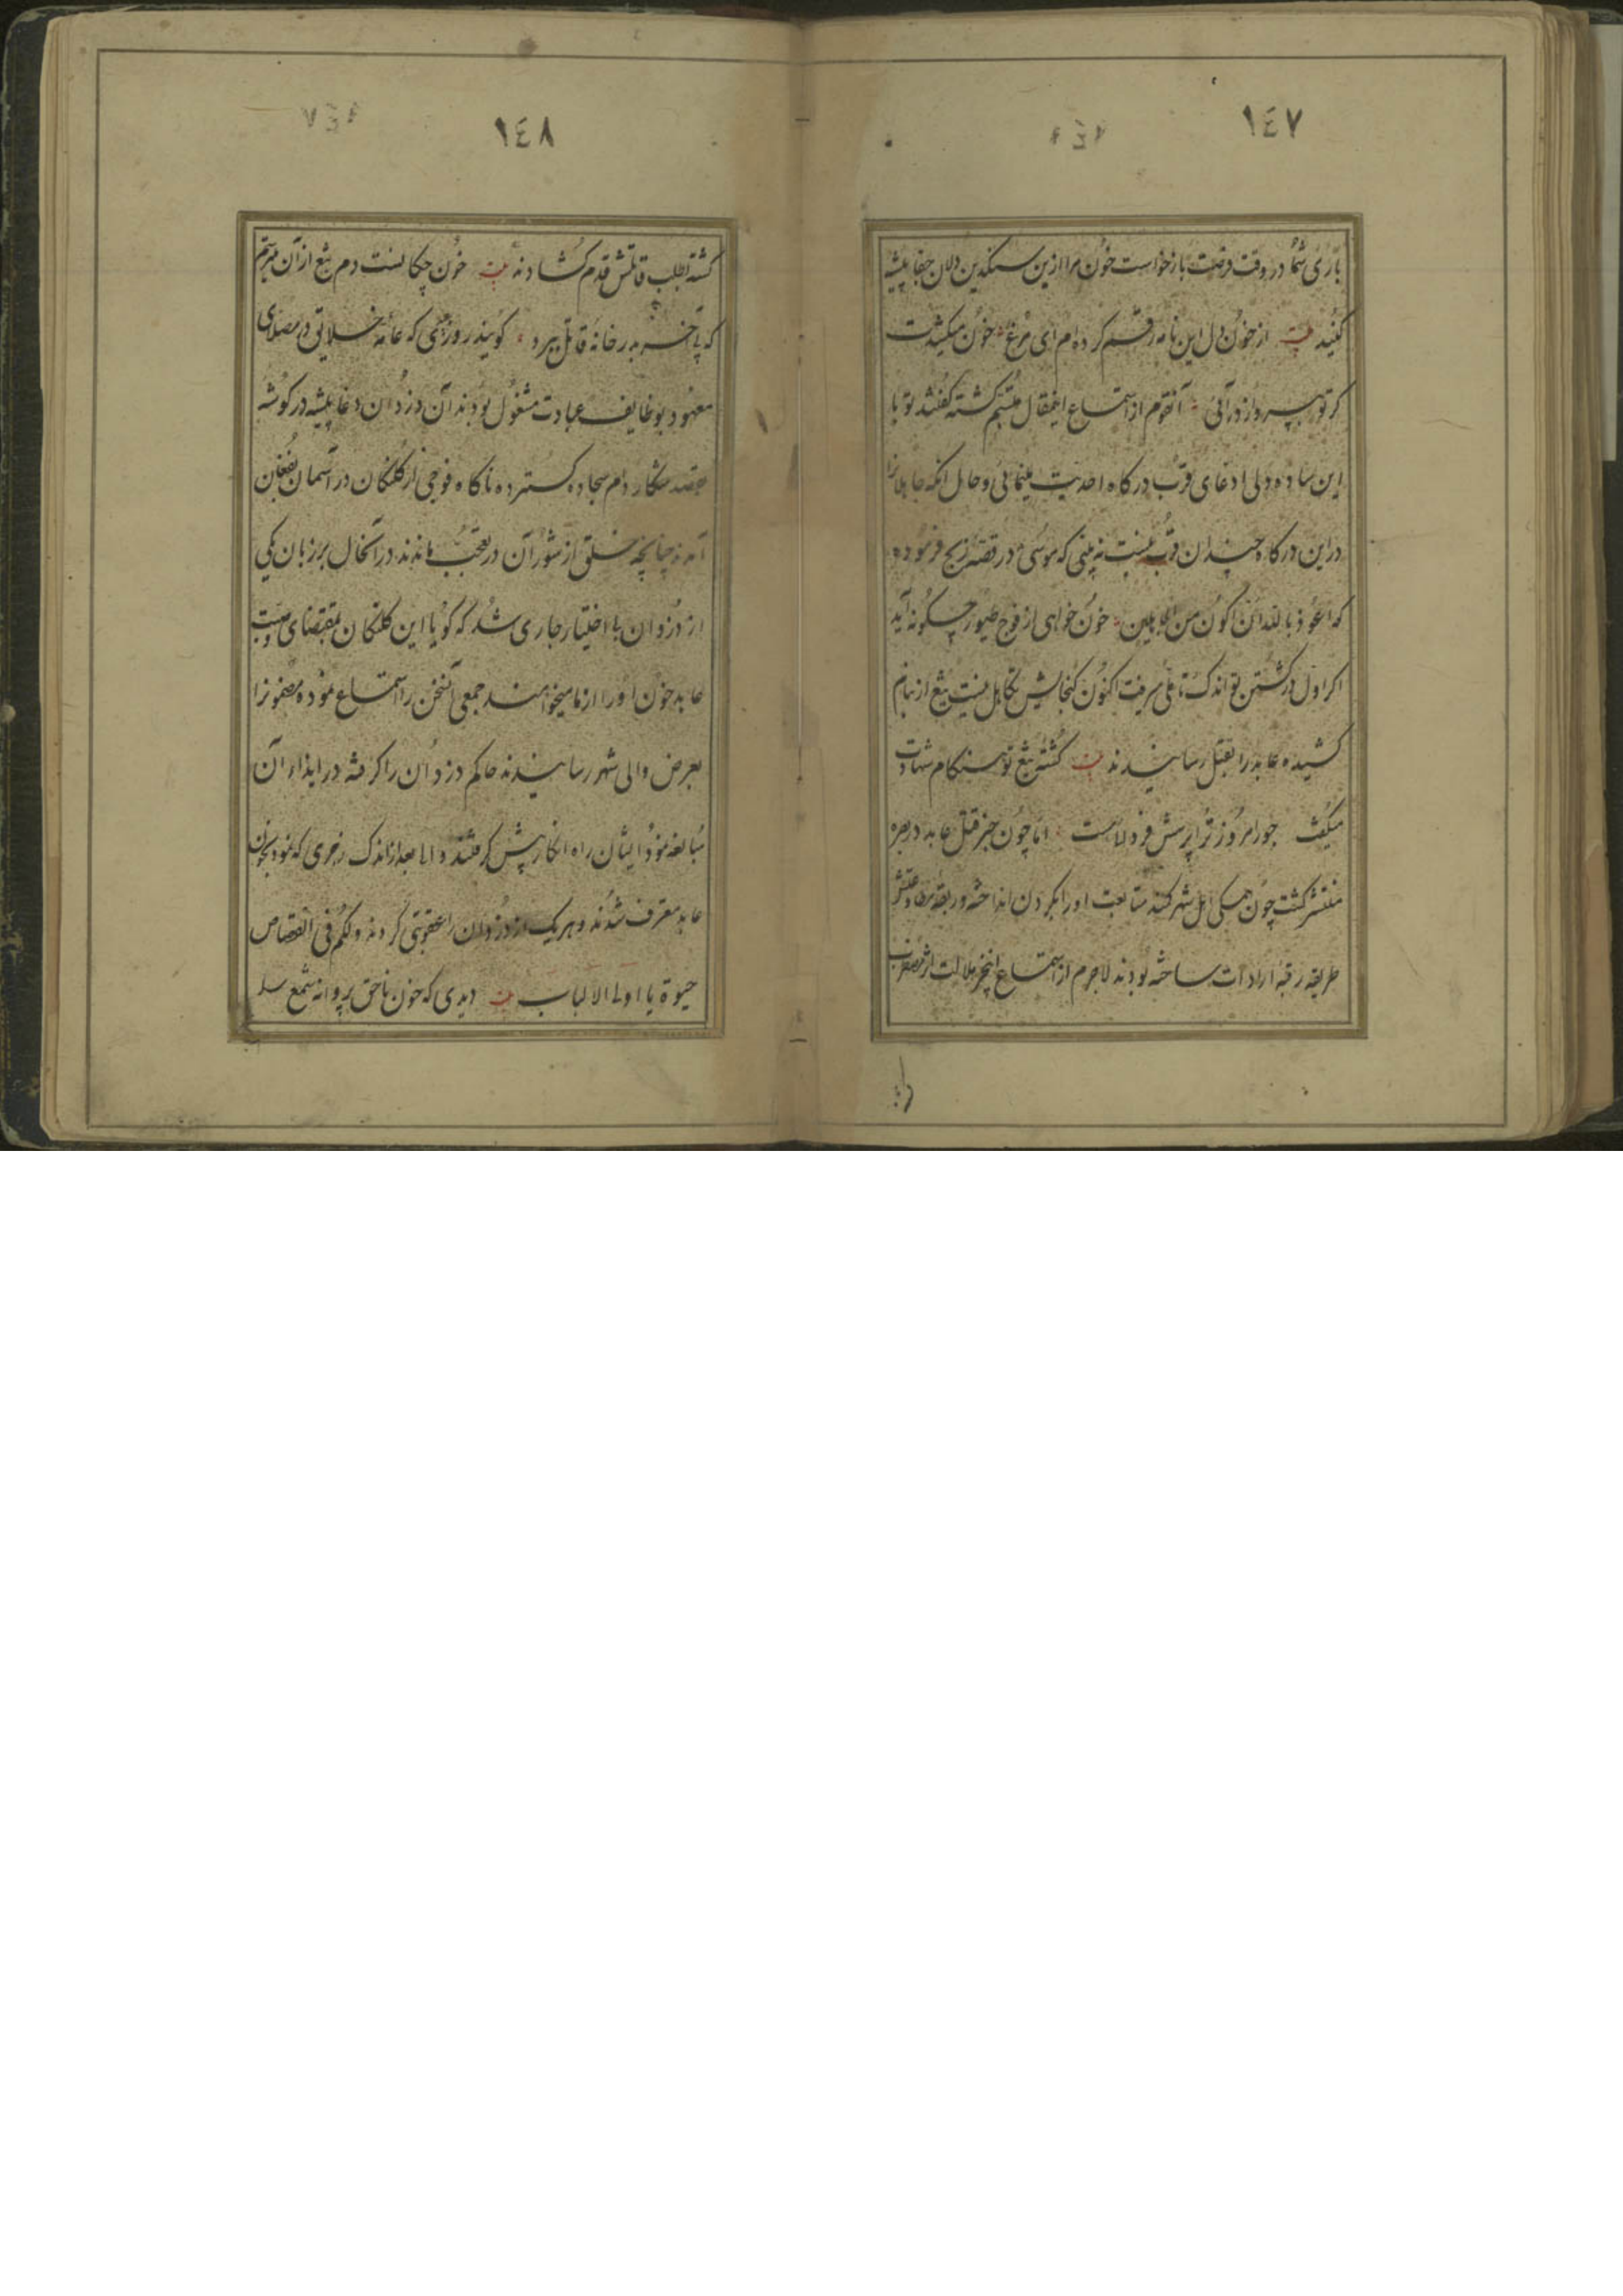 ١٤٧
باری شما در وقت فرصت بازخواست خون مرا ازین سنگین دلان جفا پیشه
کنید بیت از خون دل این نامه رقم کرده ام ای مرغ خون میکشدت
گر تو بپرواز درآئی آنقوم از استماع اینمقال متبسم گشته گفتند تو با
این ساده دلی ادعای قرب درگاه احدیت مینمائی و حال آنکه جاهلانرا
در این درگاه چندان قرب نیست نه بینی که موسی در قصه ذبح فرموده
که اعوذ بالله ان اکون من الجاهلین خون خواهی از فوج طیور چگونه آید
اگر اول در کشتن تو اندک تاملی میرفت اکنون گنجایش تجاهل نیست تیغ از نیام
کشیده عابد را بقتل رسانیدند بیت کشته تیغ تو هنگام شهادت
میگفت جور امروز ترا پرسش فردا است اما چون خبر قتل عابد در بصره
منتشر گشت چون همگی اهل شهر کمند متابعت او را بگردن انداخته و ربقه مطاوعتش
طریقه رقبه ارادت ساخته بودند لاجرم از استماع اینخبر ملالت اثر
١٤٨
گشته بطلب قاتلش قدم گشادند بیت خون چکانست دم تیغ از آن میترسم
که پی آخر بدر خانه قاتل ببرد گویند روزی که عامه خلایق در مصلای
معهود بوظایف عبادت مشغول بودند آن دزدان دغا پیشه در گوشه
بقصد شکار دام سجاده گسترده ناگاه فوجی از کلنگان در آسمان بفغان
آمدند چنانچه خلق از شور آن در تعجب ماندند در آنحال بر زبان یکی
از دزدان بی اختیار جاری شد که گویا این کلنگان بمقتضای وصیت
عابد خون او را از ما میخواهند جمعی آنسخن را استماع نموده مضمونرا
بعرض والی شهر رسانیدند حاکم دزدان را گرفته در ایذاء آن
مبالغه نمود ایشان راه انکار پیش گرفتند و اما بعد از اندک زجری که نمود بخون
عابد معترف شدند و هر یک از دزدان را عقوبتی کردند و لکم فی القصاص
حیوة یا اولی الالباب بیت دیدی که خون ناحق پروانه شمع را